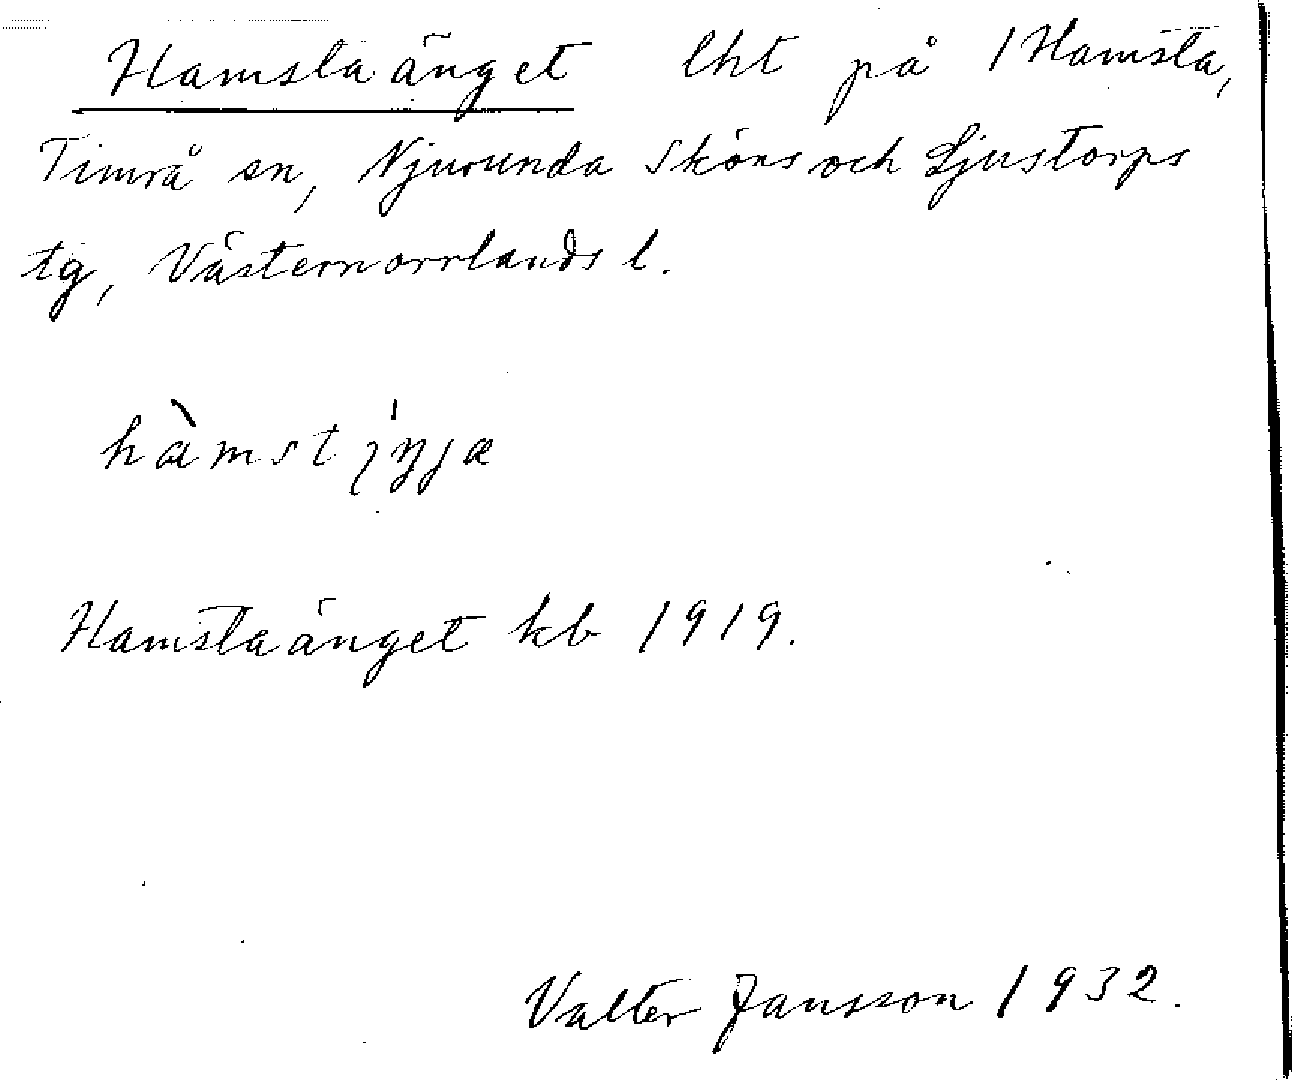 Hamstaänget lht på 1 Hamsta,
Timrå sn, Njurunda Sköns och Ljustorps
tg, Västernorrlands l.
Hamstaänget kb 1919.
Valter Jansson 1932.